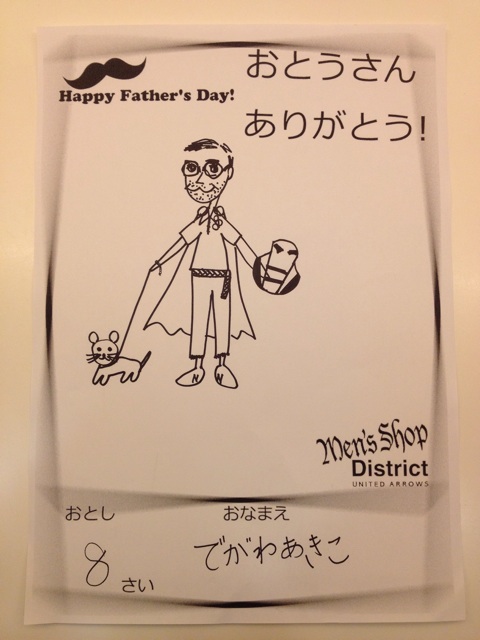 おとうさん
Happy Father's Day!
ありがとう!
Men's Shop
District
UNITED ARROWS
おとし
おなまえ
8 さい
でがわあきこ